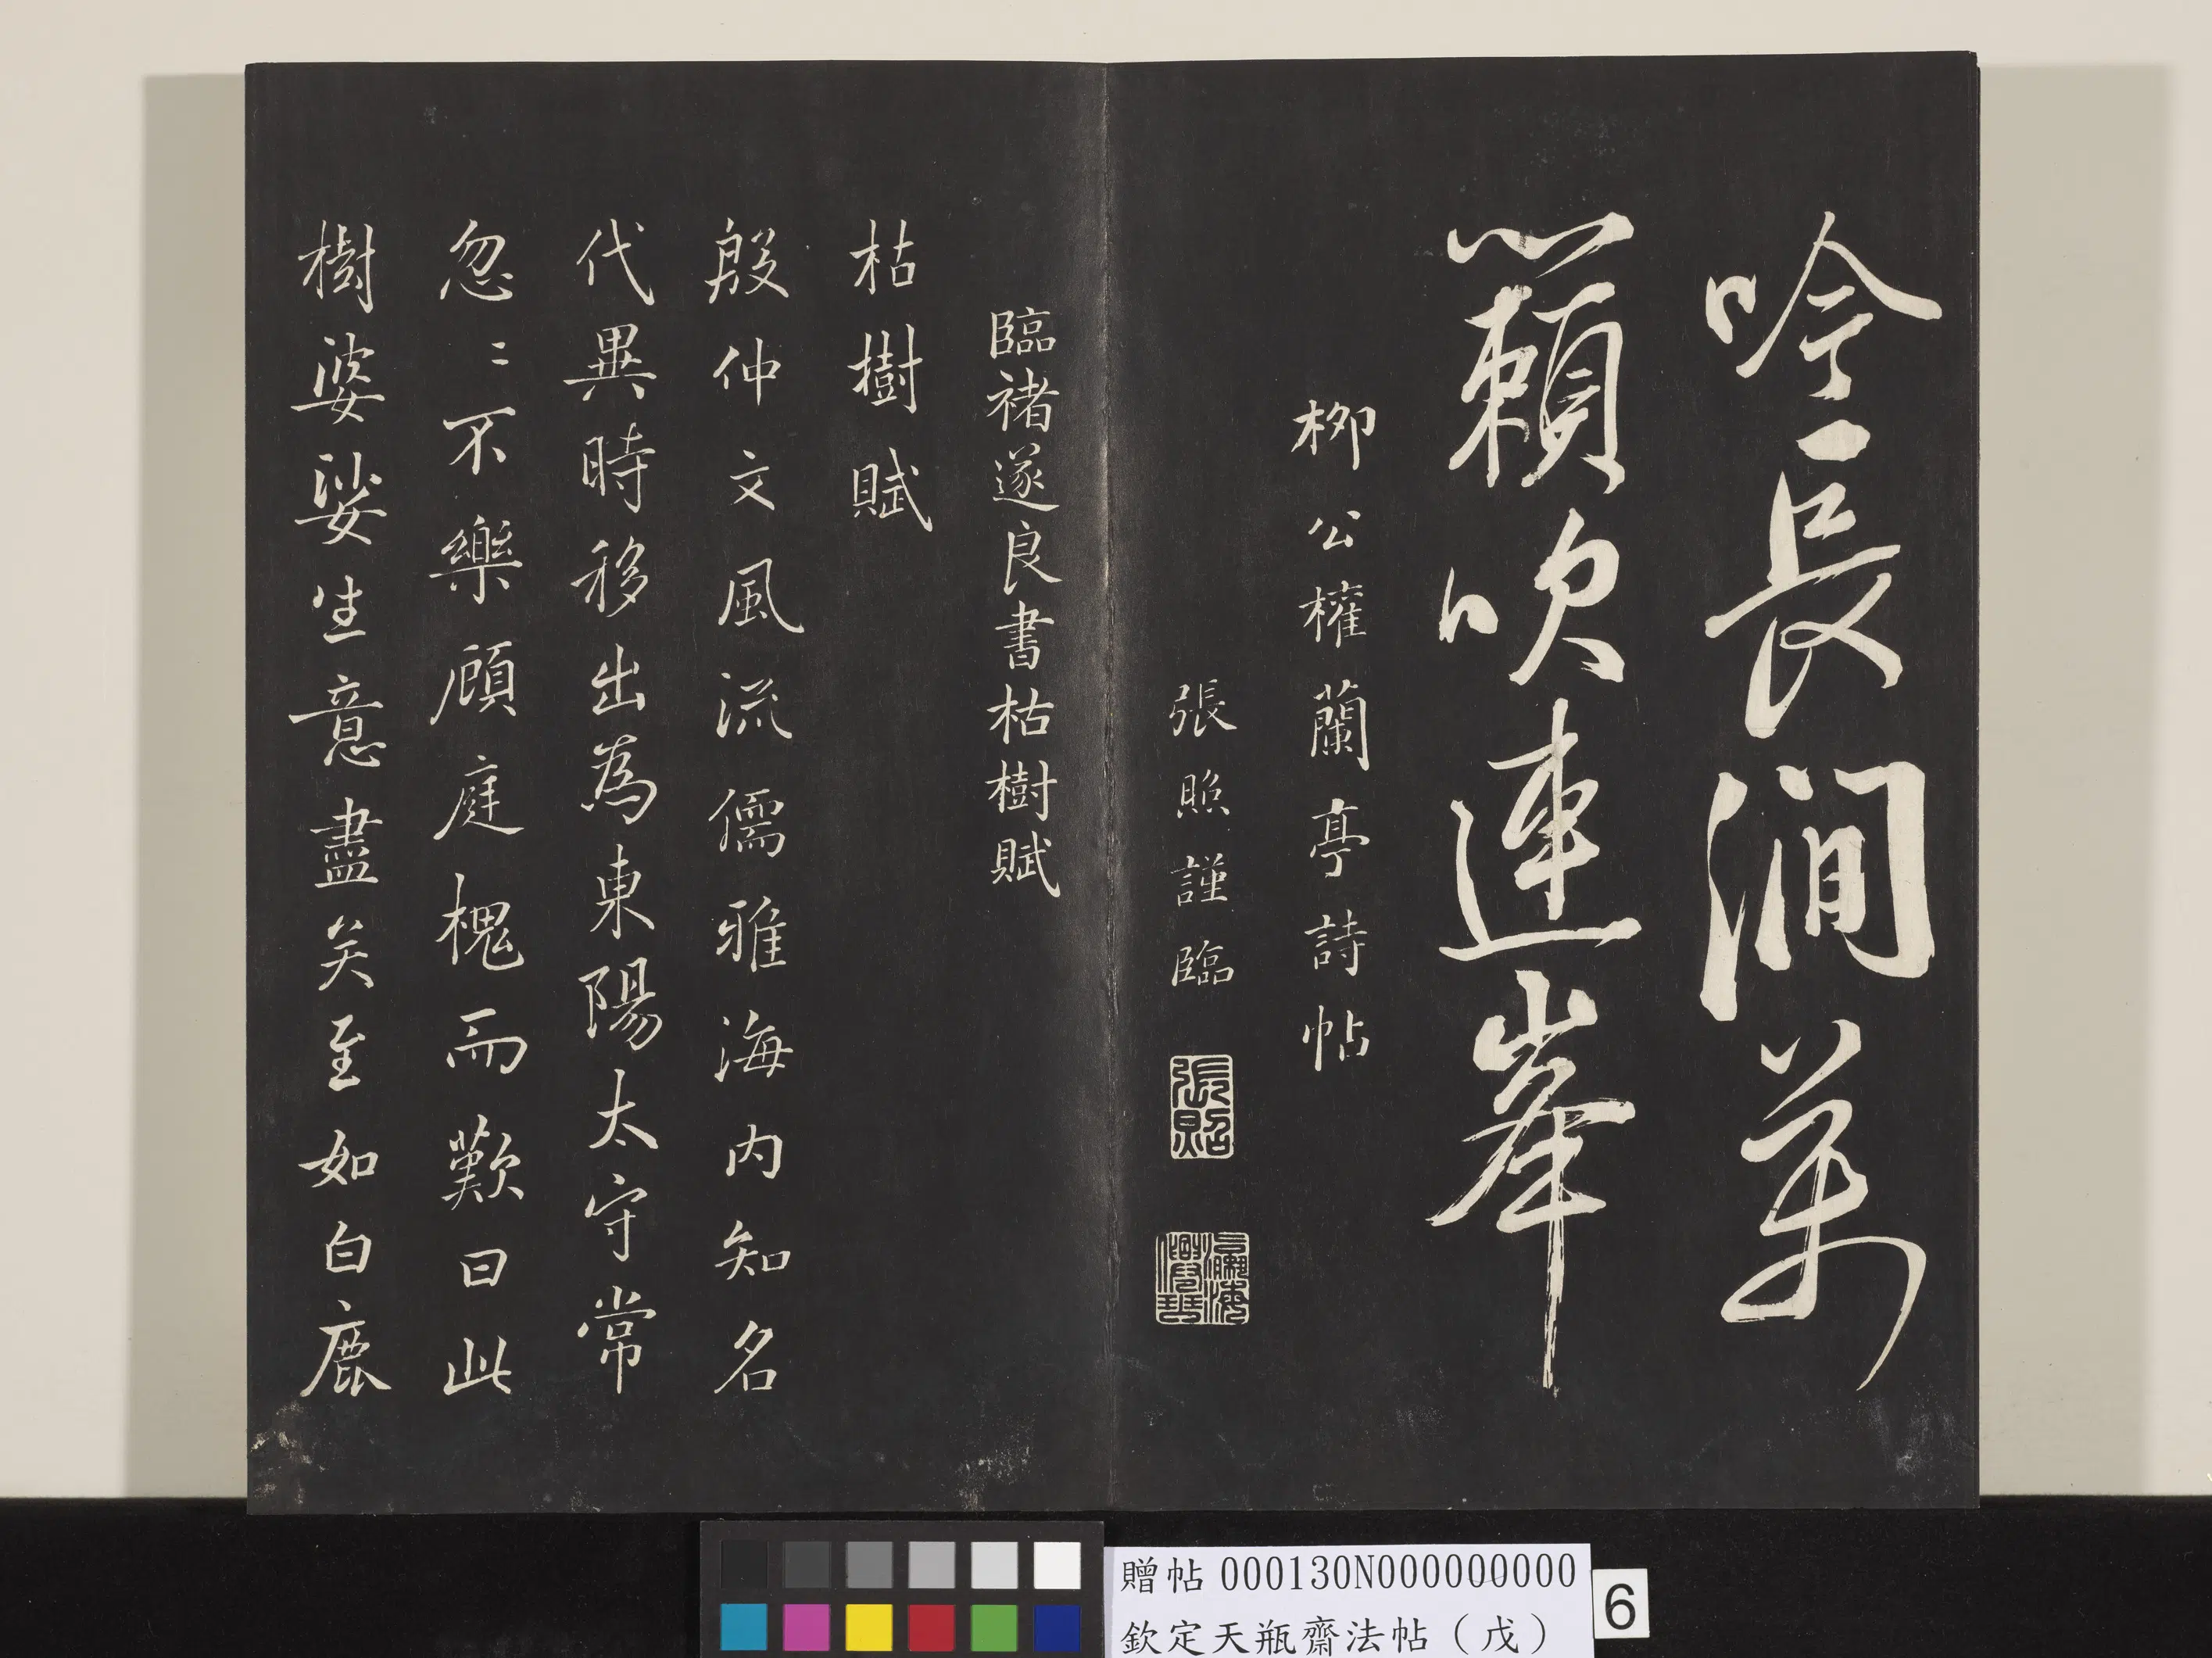 吟長澗萬
籟吹連峯
柳公權蘭亭詩帖
張照謹臨
張照
瀛海
臨褚遂良書枯樹賦
枯樹賦
殷仲文風流儒雅海内知名
代異時移出為東陽太守常
忽〻不樂顧庭槐而歎曰此
樹婆娑生意盡矣至如白鹿
贈帖 000130N000000000
欽定天瓶齋法帖（戊）
6